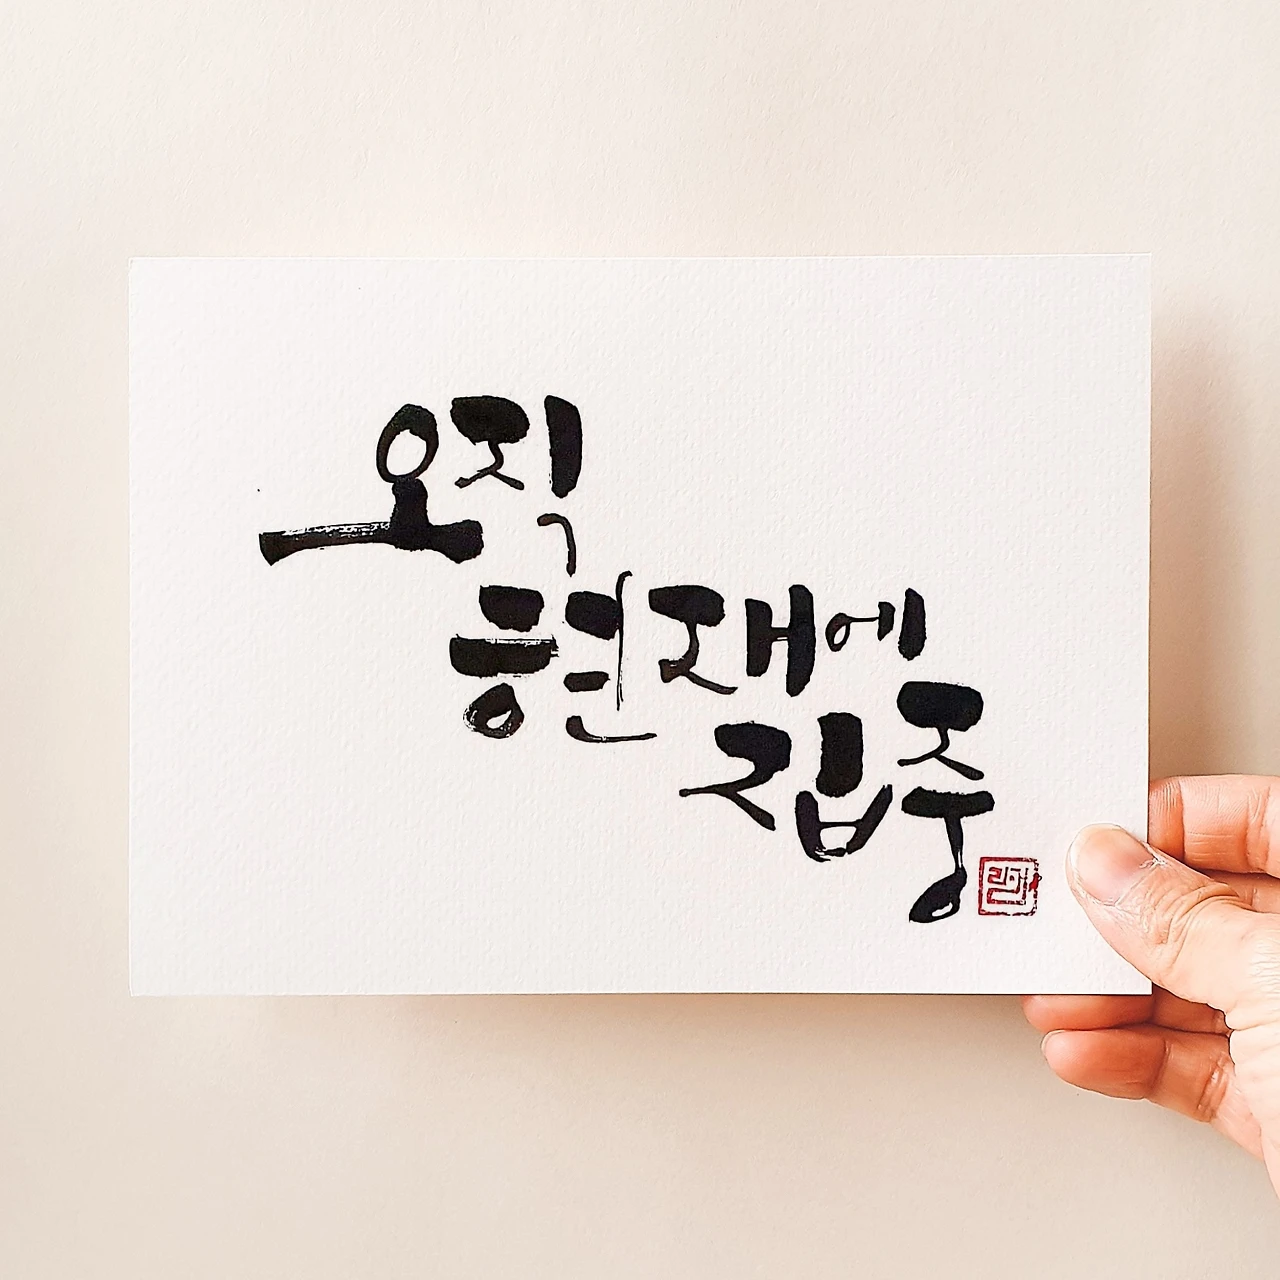 오직
현재에
집중